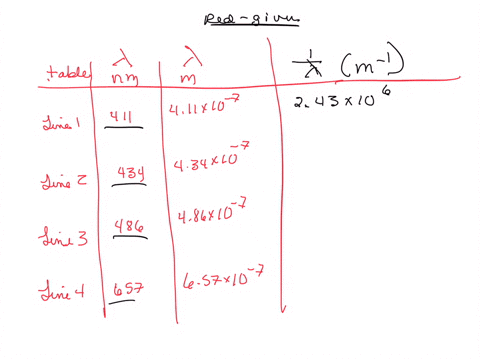 red-given
table λ nm λ m 1/λ (m⁻¹)
Line 1 411 4.11×10⁻⁷ 2.43×10⁶
Line 2 434 4.34×10⁻⁷
Line 3 486 4.86×10⁻⁷
Line 4 657 6.57×10⁻⁷